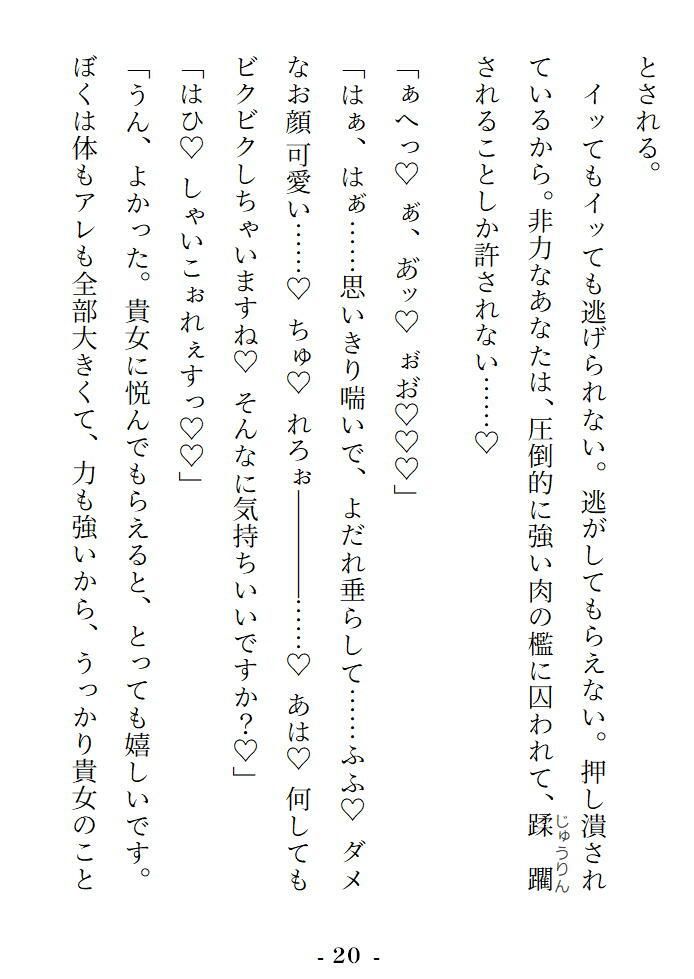 とされる。
　イッてもイッても逃げられない。逃がしてもらえない。押し潰され
ているから。非力なあなたは、圧倒的に強い肉の檻に囚われて、蹂躙
じゅうりん
されることしか許されない……♡
「ぁへっ♡ ぁ゛、あ゛ッ♡ ぉ゛お゛♡♡♡」
「はぁ、はぁ゛……思いきり喘いで、よだれ垂らして……ふふ♡ ダメ
なお顔可愛い……♡ ちゅ♡ れろぉ――――……♡ あは♡ 何しても
ビクビクしちゃいますね♡ そんなに気持ちいいですか？♡」
「はひ♡ しゃいこぉれぇすっ♡♡」
「うん、よかった。貴女に悦んでもらえると、とっても嬉しいです。
ぼくは体もアレも全部大きくて、力も強いから、うっかり貴女のこと
- 20 -